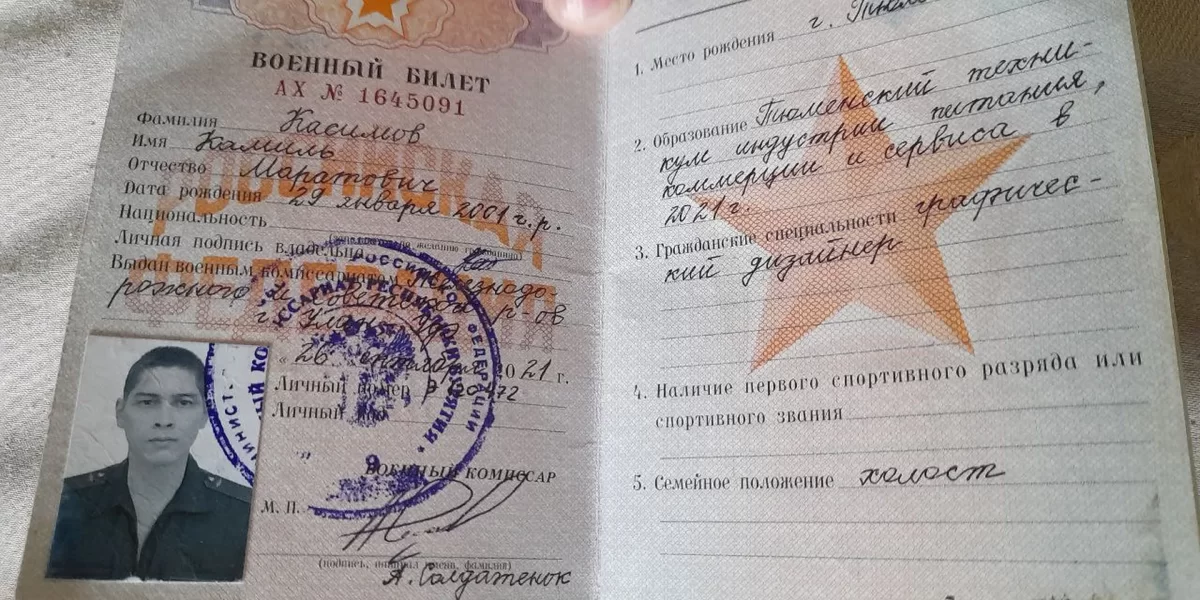 ВОЕННЫЙ БИЛЕТ
АХ № 1645091
Фамилия Касимов
Имя Камиль
Отчество Маратович
Дата рождения 29 января 2001 г.р.
Национальность
Личная подпись владельца
Выдан военным комиссариатом Железнодо
рожного и Советского р-ов
г. Улан-Удэ
„26 октября 2021 г.
Личный номер
Личный
ВОЕННЫЙ КОМИССАР
М. П.
(подпись, инициал имени, фамилия)
А. Солдатенок
1. Место рождения г.
2. Образование Тюменский техни-
кум индустрии питания,
коммерции и сервиса в
2021 г.
3. Гражданские специальности графичес-
кий дизайнер
4. Наличие первого спортивного разряда или
спортивного звания
5. Семейное положение холост